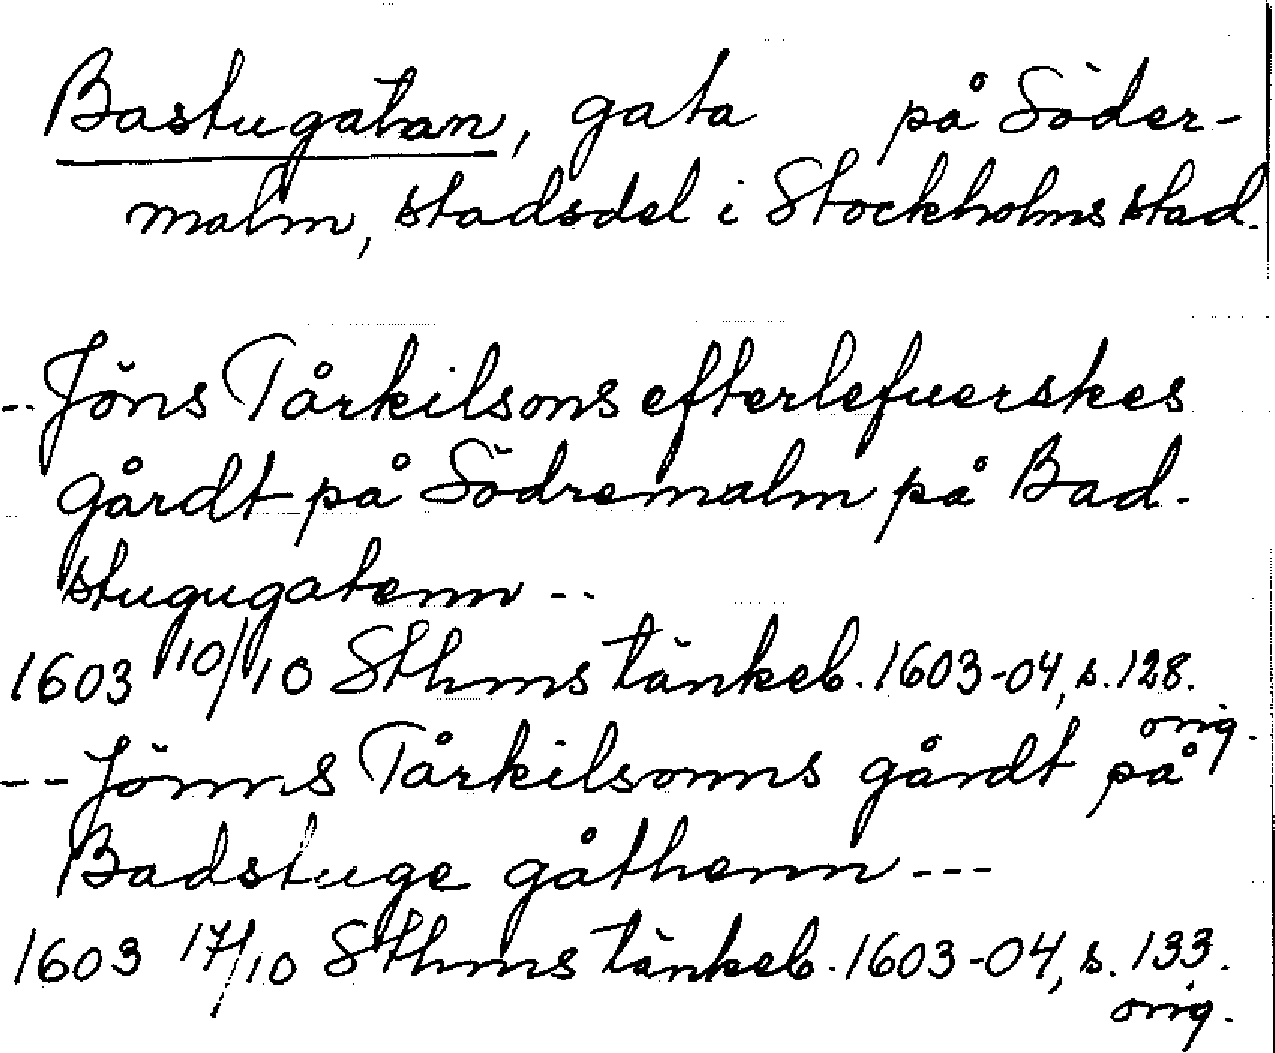 Bastugatan, gata på Söder-
malm, stadsdel i Stockholms stad.
-- Jöns Tårkilsons efterlefuerskes
gårdt på Södremalm på Bad-
stugugatenn --
1603 10/10 Sthms tänkeb. 1603-04, s. 128.
orig.
-- Jönns Tårkilsonns gårdt på
Badstuge gåthenn ---
1603 17/10 Sthms tänkeb. 1603-04, s. 133.
orig.